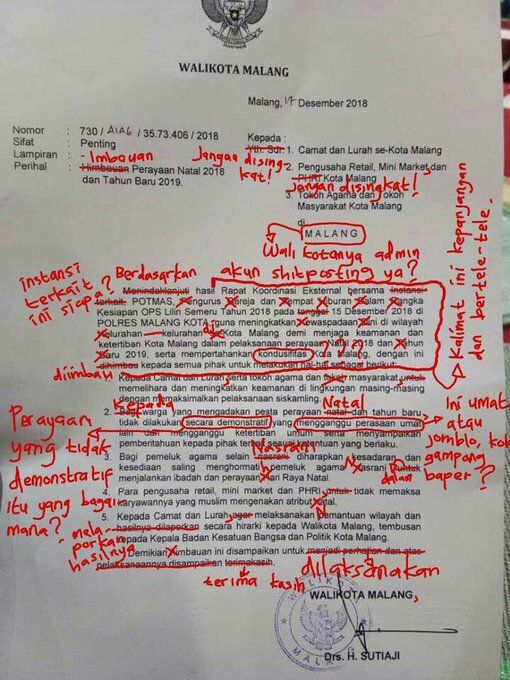 WALIKOTA MALANG
Malang, 17 Desember 2018
Nomor : 730 / A1A6 / 35.73.406 / 2018
Sifat : Penting
Lampiran : -
Imbauan
Perihal : Himbauan Perayaan Natal 2018
dan Tahun Baru 2019.
Kepada :
Yth. Sdr. 1. Camat dan Lurah se-Kota Malang
Jangan dising-
kat!
2. Pengusaha Retail, Mini Market dan
PHRI Kota Malang
jangan disingkat!
3. Tokoh Agama dan Tokoh
Masyarakat Kota Malang
di
MALANG
Wali kotanya admin
akun shitposting ya?
Instansi
terkait
ini siapa?
Berdasarkan
Menindaklanjuti hasil Rapat Koordinasi Eksternal bersama Instansi
terkait, POTMAS, Pengurus Gereja dan Tempat Hiburan dalam rangka
Kesiapan OPS Lilin Semeru Tahun 2018 pada tanggal 15 Desember 2018 di
POLRES MALANG KOTA guna meningkatkan Kewaspadaan ini di wilayah
Kelurahan - kelurahan di Kota Malang demi menjaga keamanan dan
ketertiban Kota Malang dalam pelaksanaan perayaan Natal 2018 dan Tahun
Baru 2019, serta mempertahankan kondusifitas Kota Malang, dengan ini
dihimbau kepada semua pihak untuk melakukan hal-hal sebagai berikut:
???
diimbau
Kalimat ini kepanjangan
dan bertele-tele.
Kepada Camat dan Lurah serta tokoh agama dan tokoh masyarakat untuk
memelihara dan meningkatkan keamanan di lingkungan masing-masing
dengan memaksimalkan pelaksanaan siskamling.
Kepada
Natal
2. Bagi warga yang mengadakan pesta perayaan natal dan tahun baru
tidak dilakukan secara demonstratif yang mengganggu perasaan umat
lain dan mengganggu ketertiban umum serta menyampaikan
pemberitahuan kepada pihak terkait sesuai ketentuan yang berlaku.
Perayaan
yang tidak
demonstratif
itu yang bagai
mana?
Ini umat
atau
jomblo, kok
gampang
baper?
Nasrani
3. Bagi pemeluk agama selain nasrani diharapkan kesadaran, dan
kesediaan saling menghormati pemeluk agama Nasrani untuk
menjalankan ibadah dan perayaan Hari Raya Natal.
N
dalam
4. Para pengusaha retail, mini market dan PHRI untuk tidak memaksa
karyawannya yang muslim mengenakan atribut natal.
N
5. Kepada Camat dan Lurah agar melaksanakan pemantuan wilayah dan
hasilnya dilaporkan secara hirarki kepada Walikota Malang, tembusan
kepada Kepala Badan Kesatuan Bangsa dan Politik Kota Malang.
mela
porkan
hasilnya
Demikian imbauan ini disampaikan untuk menjadi perhatian dan atas
pelaksanaannya disampaikan terimakasih.
dilaksanakan
terima kasih
WALIKOTA MALANG,
WALIKOTA
MALANG
Drs. H. SUTIAJI